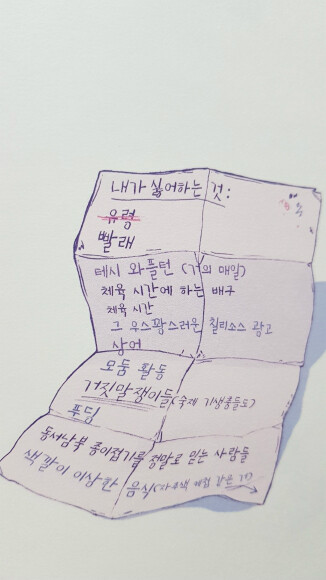 내가 싫어하는 것:
유령
빨래
테시 와플턴 (거의 매일)
체육 시간에 하는 배구
체육 시간
그 우스꽝스러운 칠리소스 광고
상어
모둠 활동
거짓말쟁이들 (숙제 기생충들도)
푸딩
동서남북 종이접기를 정말로 믿는 사람들
색깔이 이상한 음식 (자주색 케첩 같은 거)